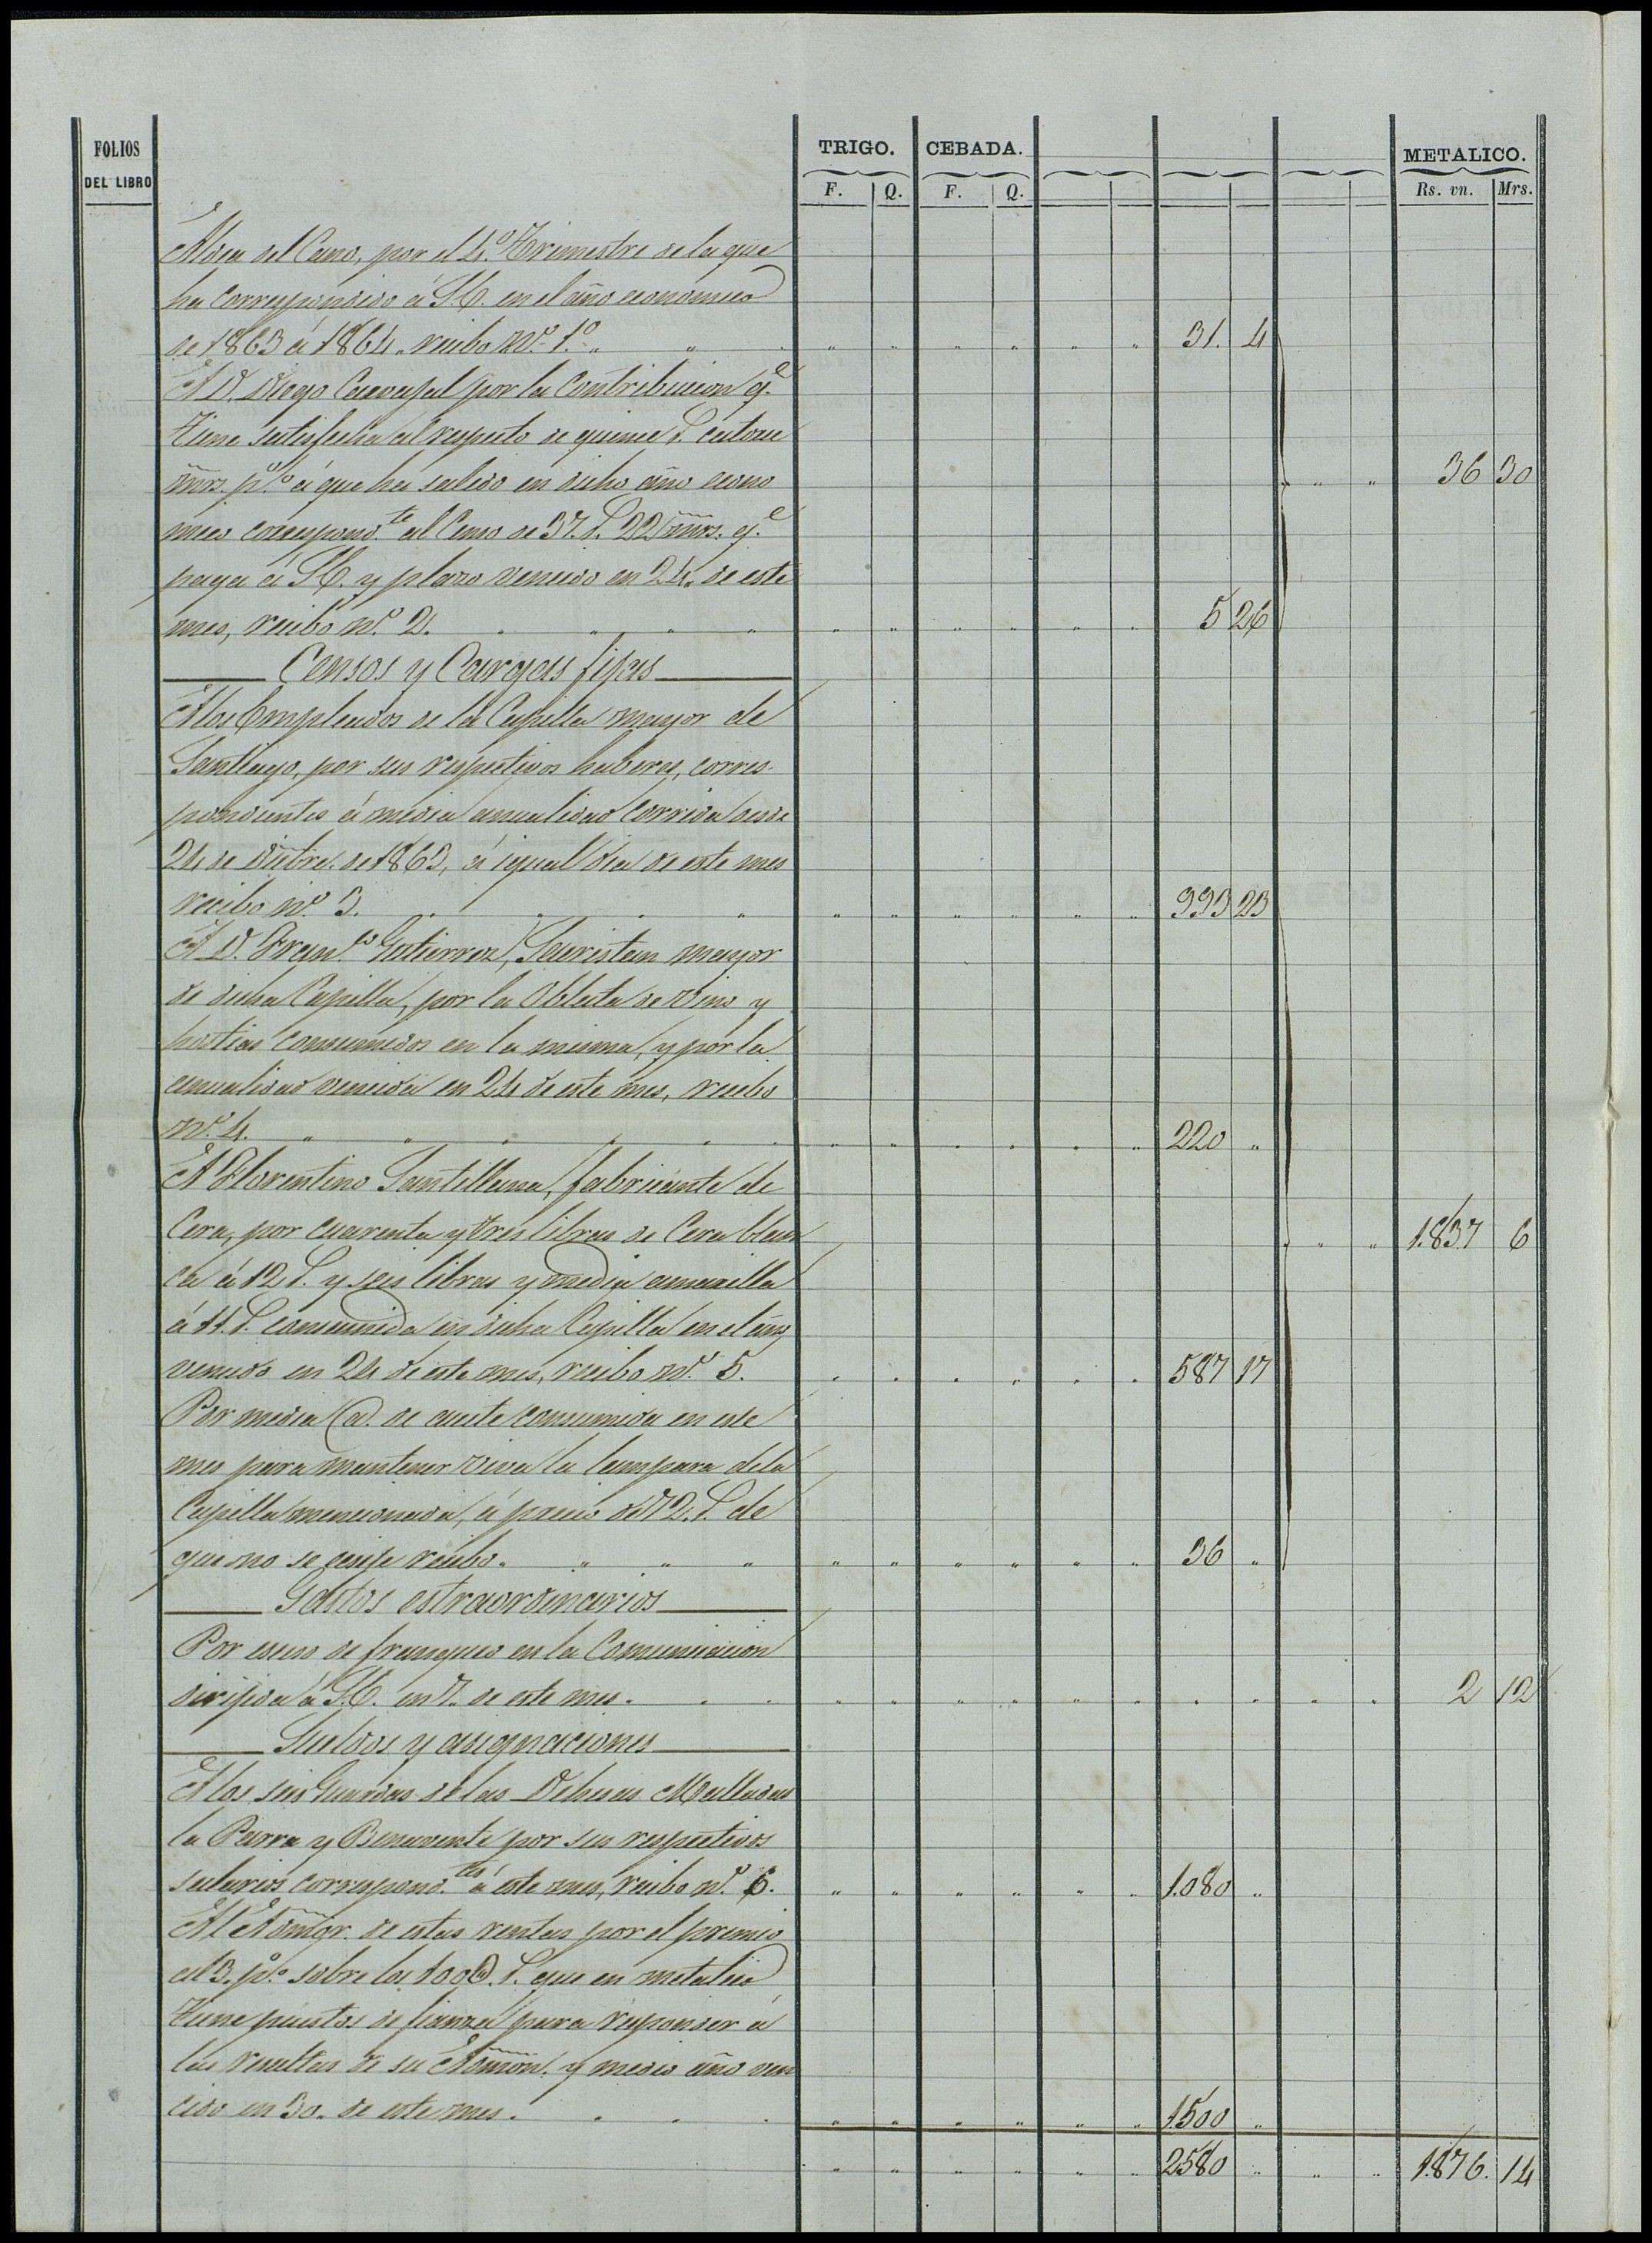 FOLIOS
DEL LIBRO
TRIGO. CEBADA. METALICO.
F. Q. F. Q. Rs. vn. Mrs.
Aldea del Cano, por el 4.º Trimestre de la que
ha correspondido á S.E. en el año economico
de 1863 á 1864. recibo N.º 1.º 31. 4
A D. Diego Carvajal por la Contribucion q.e
tiene satisfecha al respecto de quince r.s catorce
mrs. p.% á que ha salido en dicho año econo 36 30
mico correspond.te al Censo de 37. r.s 22 mrs. q.e
paga á S.E. y plazo vencido en 24. de este
mes, recibo n.º 2. 5 26
Censos y Cargas fijas
A los Empleados de la Capilla mayor de
Santiago, por sus respectivos haberes, corres-
pondientes á media anualidad corrida desde
24 de Dicbre. de 1863, á igual dia de este mes
recibo n.º 3. 993 23
A D. Fran.co Gutierrez, Sacristan mayor
de dicha Capilla, por la Oblata de vino y
hostias consumidos en la misma, y por la
anualidad vencida en 24 de este mes, recibo
n.º 4. 220
A Florentino Santillana, fabricante de
Cera, por cuarenta y tres libras de Cera blan 1.837 6
ca á 12 r.s y seis libras y media amarilla
á 11. r.s consumida en dicha Capilla en el año
vencido en 24 de este mes, recibo n.º 5. 587 17
Por media @. de aceite consumida en este
mes para mantener viva la lampara de la
Capilla mencionada, á precio de 72. r.s de
que no se exije recibo. 36
Gastos estraordinarios
Por esceso de franqueo en la Comunicacion
dirijida á S.E. en 7. de este mes. 2 12
Sueldos y asignaciones
A los seis Guardas de las Dehesas Malladas
la Parra y Benavente por sus respectivos
salarios correspond.tes á este mes, recibo n.º 6. 1.080
Al Admor. de estas rentas por el premio
al 3. p.% sobre los 100@. r.s que en metalico
tiene puestos de fianza para responder á
las resultas de su Admon. y medio año ven
cido en 30. de este mes. 1.500
2.580 1.876. 14